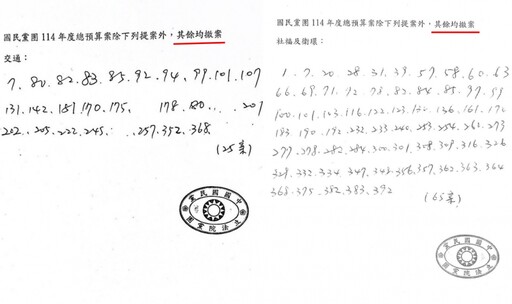 國民黨團 114 年度總預算案除下列提案外，其餘均撤案
交通：
7. 80. 82. 83. 85. 92. 94. 99. 101. 107
131. 142. 170. 175. 178. 201
202. 205. 222. 245. 257. 352. 368
(25案)
國民黨團 114 年度總預算案除下列提案外，其餘均撤案
社福及衛環：
1. 7. 20. 28. 31. 39. 57. 58. 60. 63
66. 69. 71. 72. 78. 82. 84. 85. 97. 99
100. 101. 103. 116. 122. 123. 136. 161. 170
183. 190. 192. 232. 233. 240. 253. 254. 262. 273
277. 278. 282. 284. 300. 301. 308. 309. 316. 326
329. 332. 334. 347. 343. 356. 357. 362. 363. 364
368. 375. 382. 383. 392
(65案)
中國國民黨
立法院黨團
中國國民黨
立法院黨團